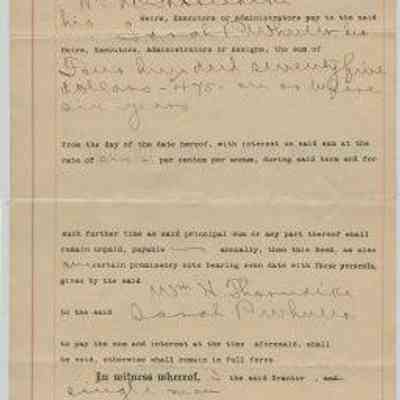 his Heirs, Executors or Administrators pay to the said
Sarah P Wheeler her
Heirs, Executors, Administrators or Assigns, the sum of
Four hundred seventy five
dollars - 475 - on or before
six years
from the day of the date hereof, with interest on said sum at the
rate of six per centum per annum, during said term and for
such further time as said principal sum or any part thereof shall
remain unpaid, payable annually, then this Deed, as also
certain promissory note bearing even date with These presents,
given by the said
Wm H Thorndike
to the said Sarah P Wheeler
to pay the sum and interest at the time aforesaid, shall
be void, otherwise shall remain in full force
In witness whereof, I the said Grantor , and
single man